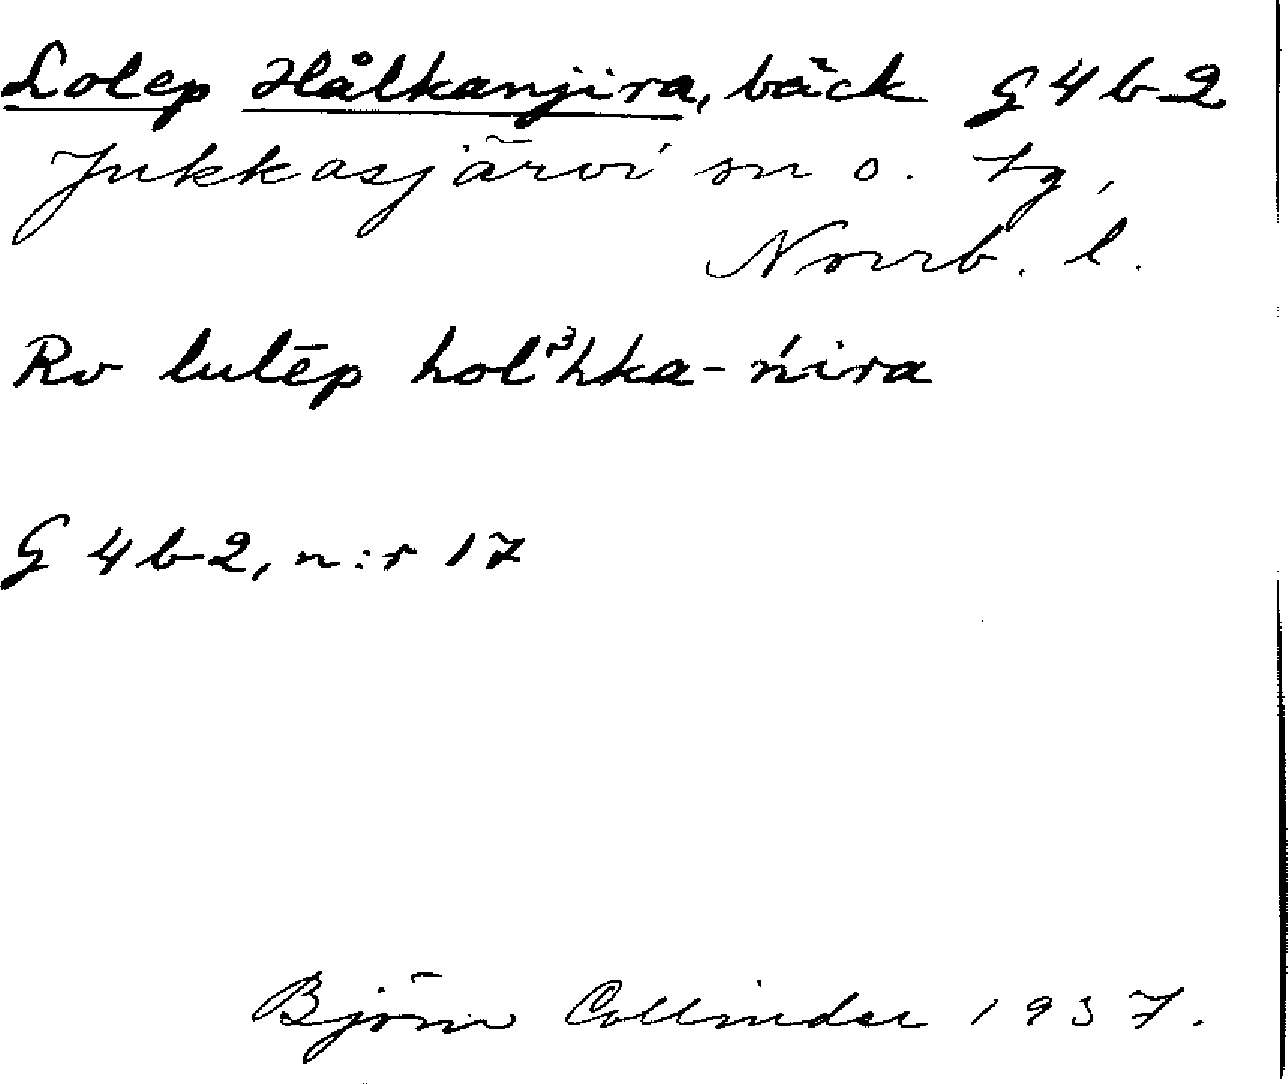 Lolep Hålkanjira, bäck G 4 b 2
Jukkasjärvi sn o. tg,
Norrb. l.
Rv lulēp hol³hka-ńira
G 4 b 2, n:r 17
Björn Collinder 1937.